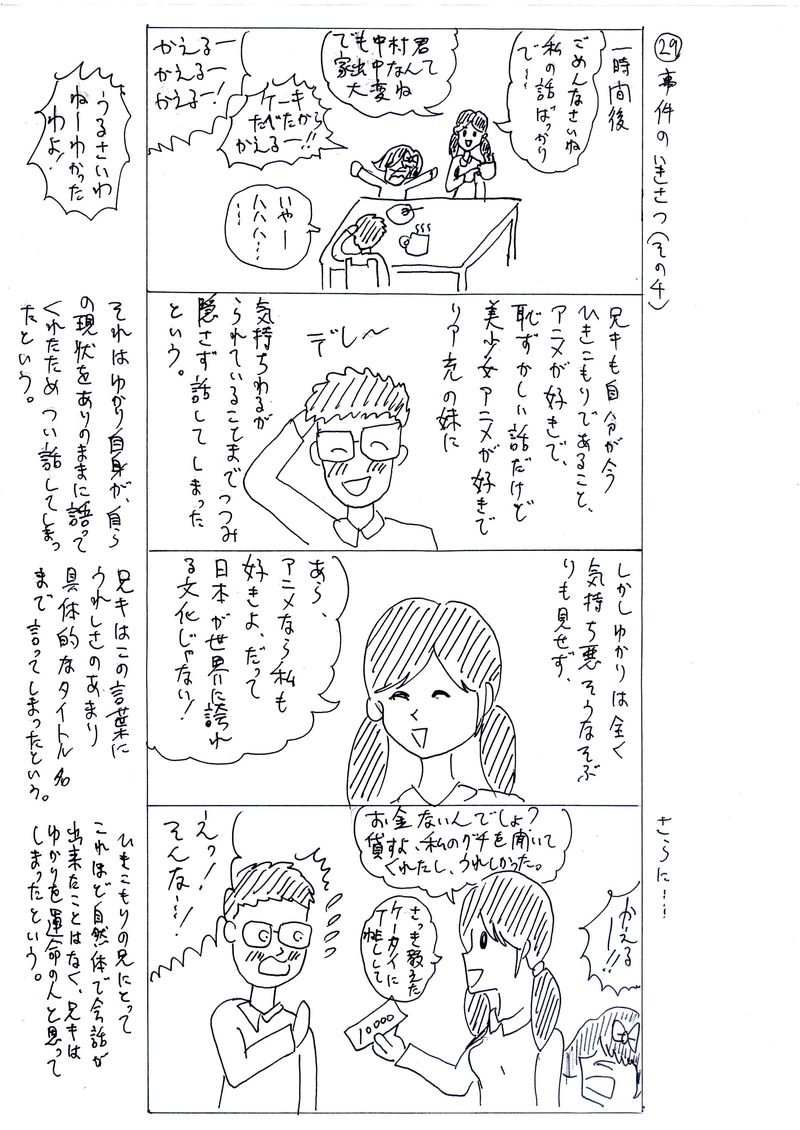 ㉙事件のいきさつ(その4)
一時間後
ごめんなさいね
私の話ばっかり
で〜
でも中村君て
家出中なんて
大変ね
ケーキ
たべたから
かえるー!!
かえるー
かえるー
かえるー!
いやー
ハハハ…
うるさいわ
ねーわかった
わよ!
兄キも自分が今
ひきこもりであること、
アニメが好きで、
恥ずかしい話だけど
美少女アニメが好きで
リア充の妹に
デレ〜
気持ちわるが
られていることまでつつみ
隠さず話してしまった
という。
それはゆかり自身が、自ら
の現状をありのままに語って
くれたためつい話してしまっ
たという。
しかしゆかりは全く
気持ち悪そうなそぶ
りも見せず、
あら、
アニメなら私も
好きよ、だって
日本が世界に誇れ
る文化じゃない!
兄キはこの言葉に
うれしさのあまり
具体的なタイトル名
まで言ってしまったという。
さらに…
かえる
ー!!
お金ないんでしょ?
貸すよ、私のグチを聞いて
くれたし、うれしかった。
さっき教えた
ケータイに
連してて
10000
えっ!
そんな〜!
ひきこもりの兄にとって
これほど自然体で会話が
出来たことはなく、兄キは
ゆかりを運命の人と思って
しまったという。